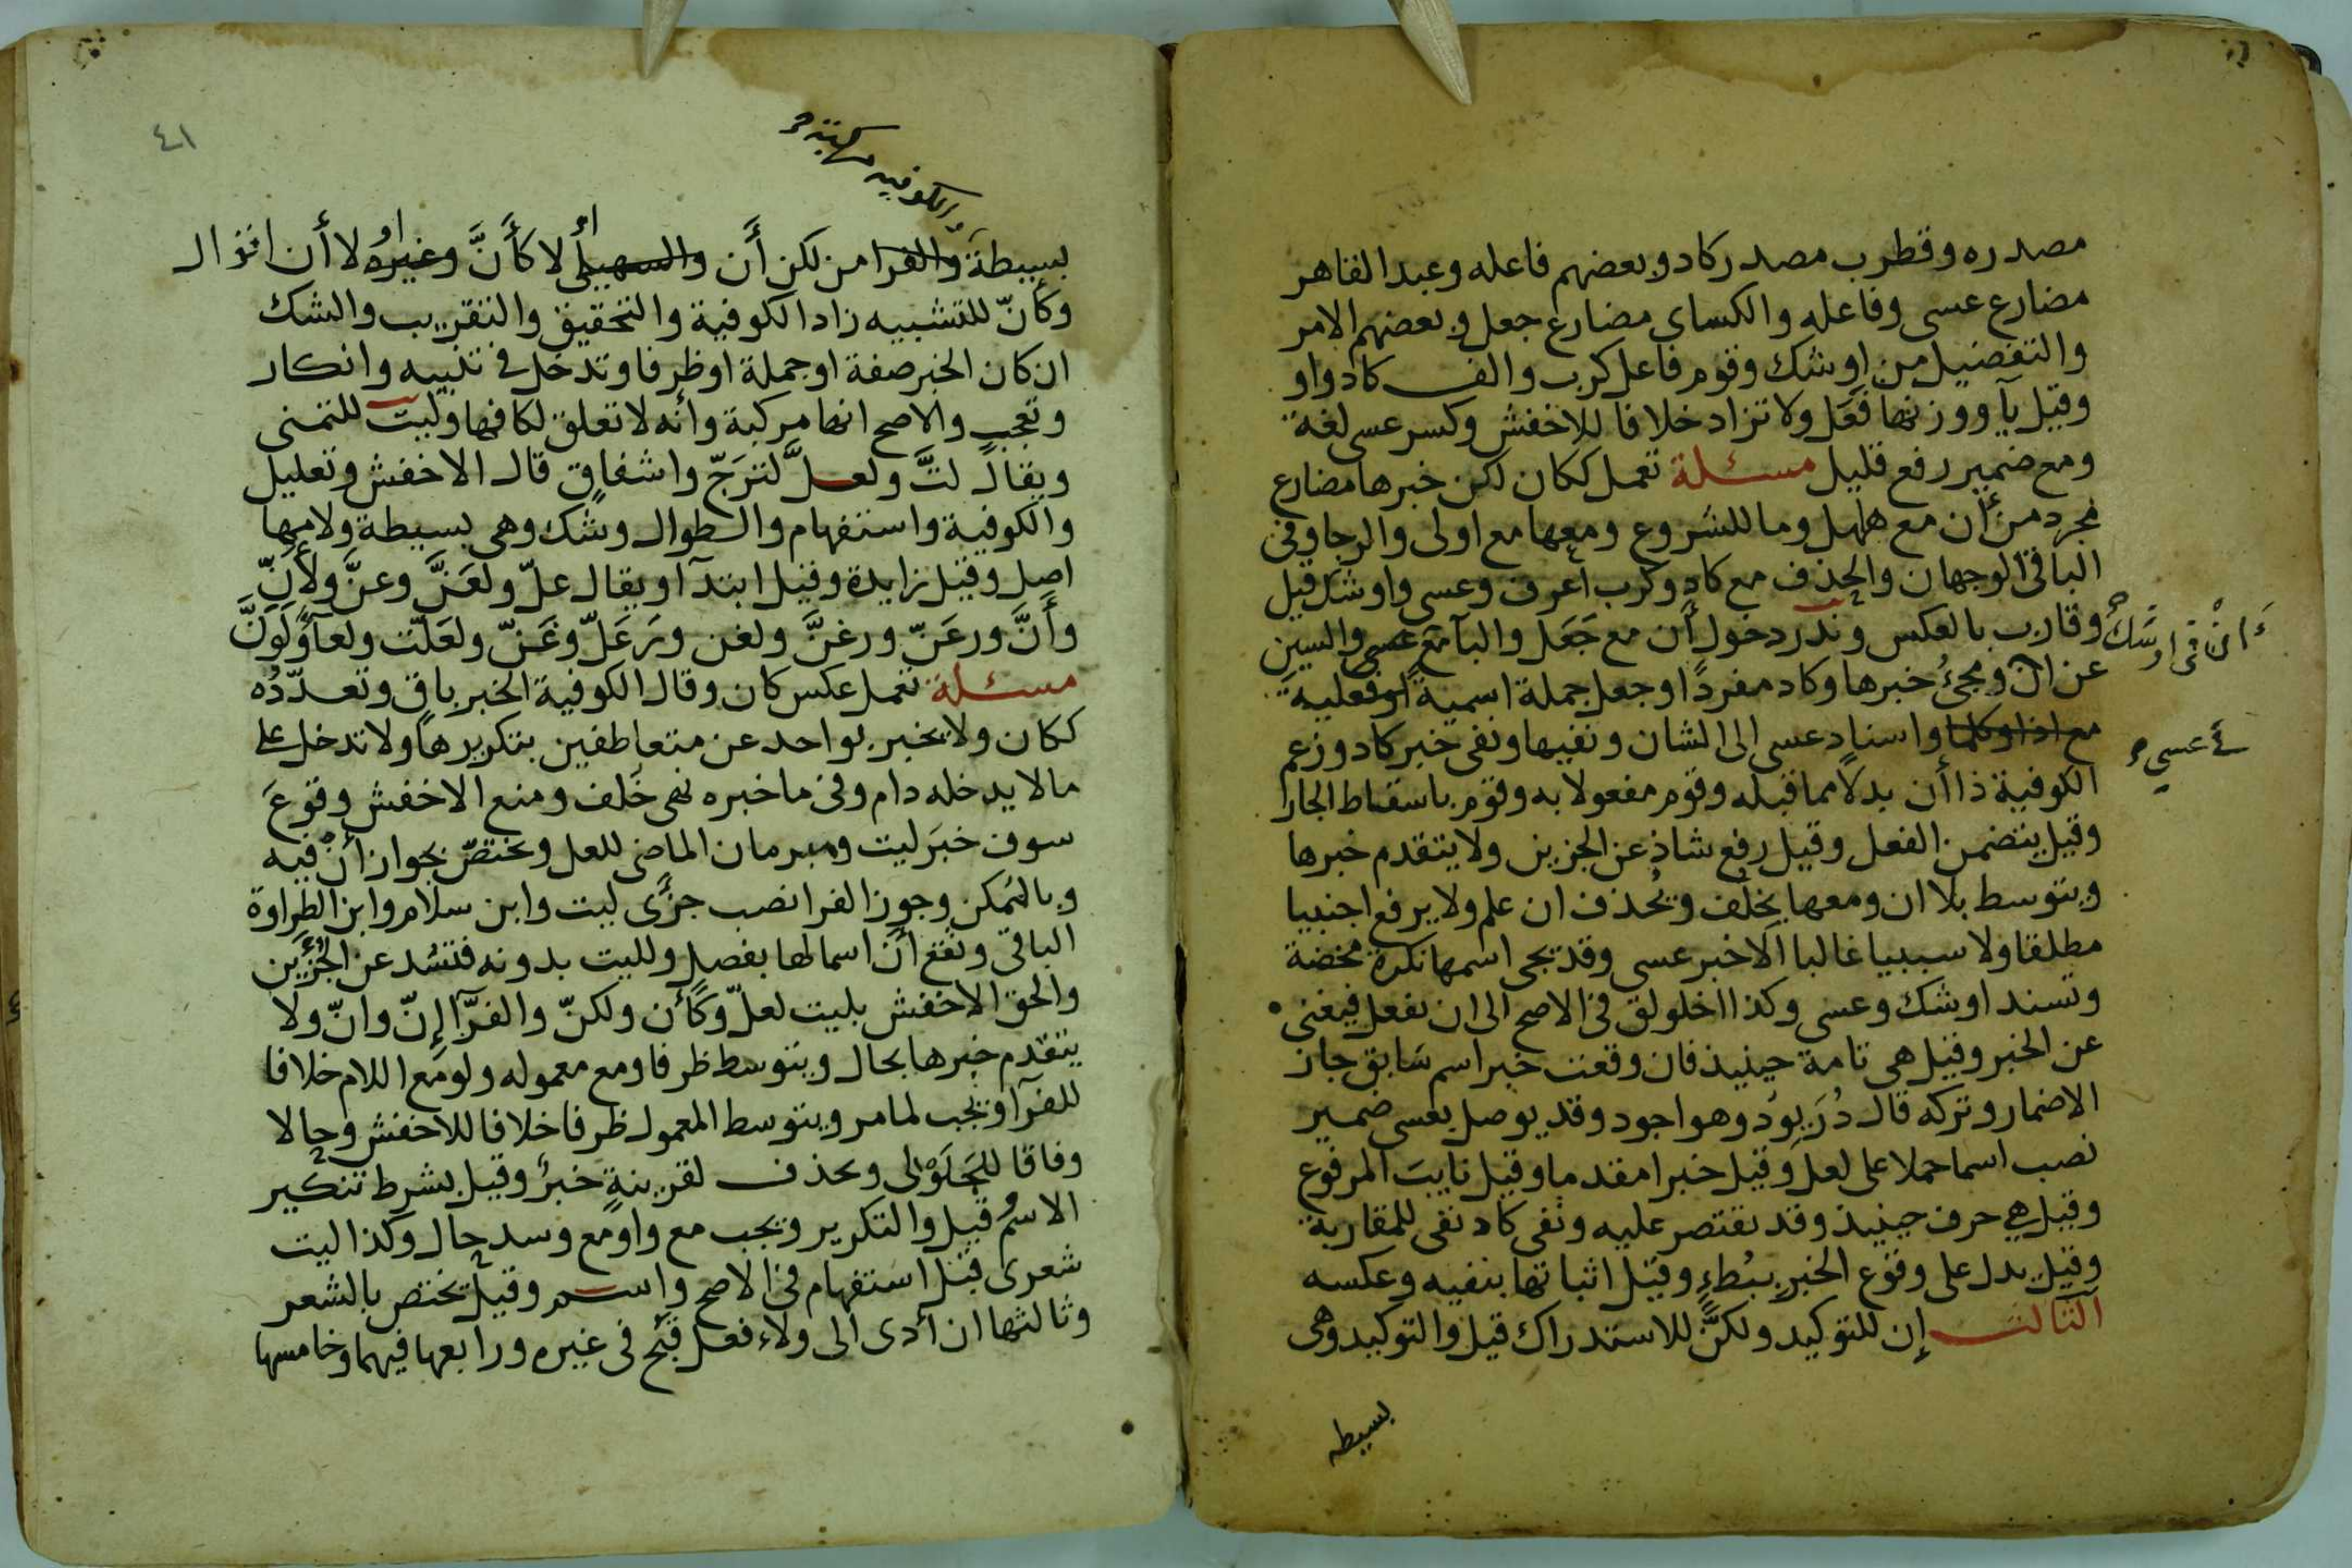 مصدره وقطرب مصدر كاد وبعضهم فاعله وعبد القاهر
مضارع عسى وفاعله والكساى مضارع جعل وبعضهم الامر
والتفضيل من اوشك وقوم فاعل كرب والف كاد واو
وقيل يآ ووزنها فَعَل ولا تزاد خلافا للاخفش وكسر عسى لغة
ومع ضمير رفع قليل مسئلة تعمل ككان لكن خبرها مضارع
مجرد من أن مع هلهل وما للشروع ومعها مع اولى والرجا وفى
الباقى الوجهان والحذف مع كاد وكرب أعرف وعسى واوشك قيل
وقارب بالعكس وندر دخول أن مع جَعَل والبآ مع عسى والسين
ان فى اوشك
عن ان ومجئُ خبرها وكاد مفردًا وجعل جملة اسمية او فعلية
مع اذا وكلما واسناد عسى الى الشان ونفيها ونفى خبر كاد وزعم
عسى
الكوفية ذا أن بدلا مما قبله وقوم مفعولا به وقوم باسقاط الجار
وقيل يتضمن الفعل وقيل رفع شاذ عن الجزين ولا يتقدم خبرها
ويتوسط بلا ان ومعها يخلف ويُحذف ان علم ولا يرفع اجنبيا
مطلقا ولا سببيا غالبا الا خبر عسى وقد يجى اسمها نكرة محضة
وتسند اوشك وعسى وكذا اخلولق فى الاصح الى ان تفعل فيغنى
عن الخبر وقيل هى تامة حينيذ فان وقعت خبر اسم سَابق جاز
الاضمار وتركه قال دُرَيوُد وهو اجود وقد يوصل بعسى ضمير
نصب اسما حملا على لعل وقيل خبرا مقدما وقيل نايبَ المرفوع
وقيل هي حرف حينيذ وقد يقتصر عليه ونفى كاد نفى للمقاربة
وقيل يدل على وقوع الخبر ببُطءٍ وقيل اثباتها بنفيه وعكسه
الثالث إن للتوكيد ولكنَّ للاستدراك قيل والتوكيد وهى
بسيطه
٤١
والكوفيه
بسيطة والفرا من لكن أَن والسهيلى لا كأَنَّ وغيره لا أن
وكأنّ للتشبيه زاد الكوفية والتحقيق والتقريب والشك
ان كان الخبر صفة او جملة او ظرفا وتدخل فى تنبيه وانكار
وتعجب والاصح انها مركبة وأنه لا تعلق لكافها وليت للتمنى
ويقال لتَّ ولعلَّ لترَجّ واشفاق قال الاخفش وتعليل
والكوفية واستفهام والطوال وشك وهى بسيطة ولامها
اصل وقيل زايدة وقيل ابتدآ ويقال علّ ولعَنَّ وعنَّ ولأَنّ
وأَنَّ ورعَنّ ورغنَّ ولغن ورَعَلّ وغَنّ ولعَلّت ولعآ ولَوَنَّ
مسئلة تعمل عكس كان وقال الكوفية الخبر باق وتعدّدُه
ككان ولا يخبر بواحد عن متعاطفين بتكريرها ولا تدخل على
مالا يدخله دام وفى ما خبره نهى خَلف ومنع الاخفش وقوعَ
سوف خبَر ليت ومبرمان الماضى للعل ويختصّ بجواز أنْ فيه
وبالتمكن وجوز الفرا نصب جزَءى ليت وابن سلام وابن الطراوة
الباقى وتقع أنّ اسما لها بفصل ولليت بدونه فتسُد عن الجُزْءَين
والحق الاخفش بليت لعلّ وكأن ولكنّ والفرّآ إنّ وانّ ولا
يتقدم خبرها بحال ويتوسط ظرفا ومع معموله ولو مَع اللام خلافا
للفرآ ويجب لما مر ويتوسط المعمول ظرفا خلافا للاخفش وحالا
وفاقا للجَلَوْلى ويحذف لقرينةٍ خبرُ وقيل بشرط تنكير
الاسم قيل والتكرير ويجب مع واو مَع وسد حال وكذا ليت
شعرى قبل استفهام فى الاصح واسم وقيل يختص بالشعر
وثالثها ان أدى الى ولاء فعل قبُح فى غيره ورابعها فيهما وخامسها